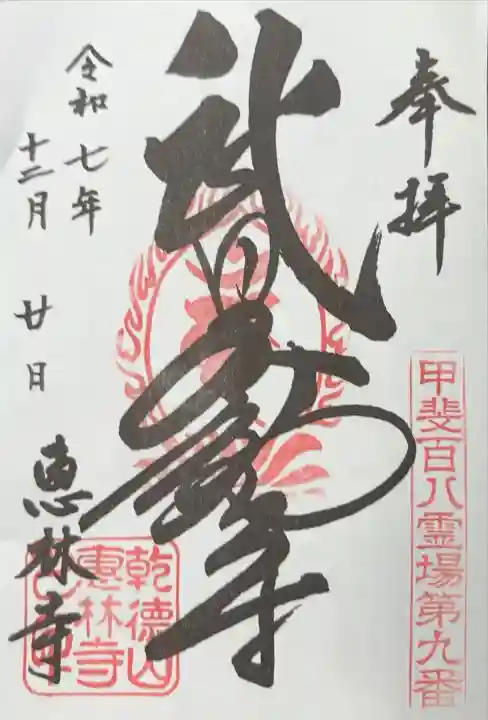 奉拝
甲斐百八霊場第九番
武田不動尊
令和七年
十二月廿日
恵林寺
乾徳山
恵林寺